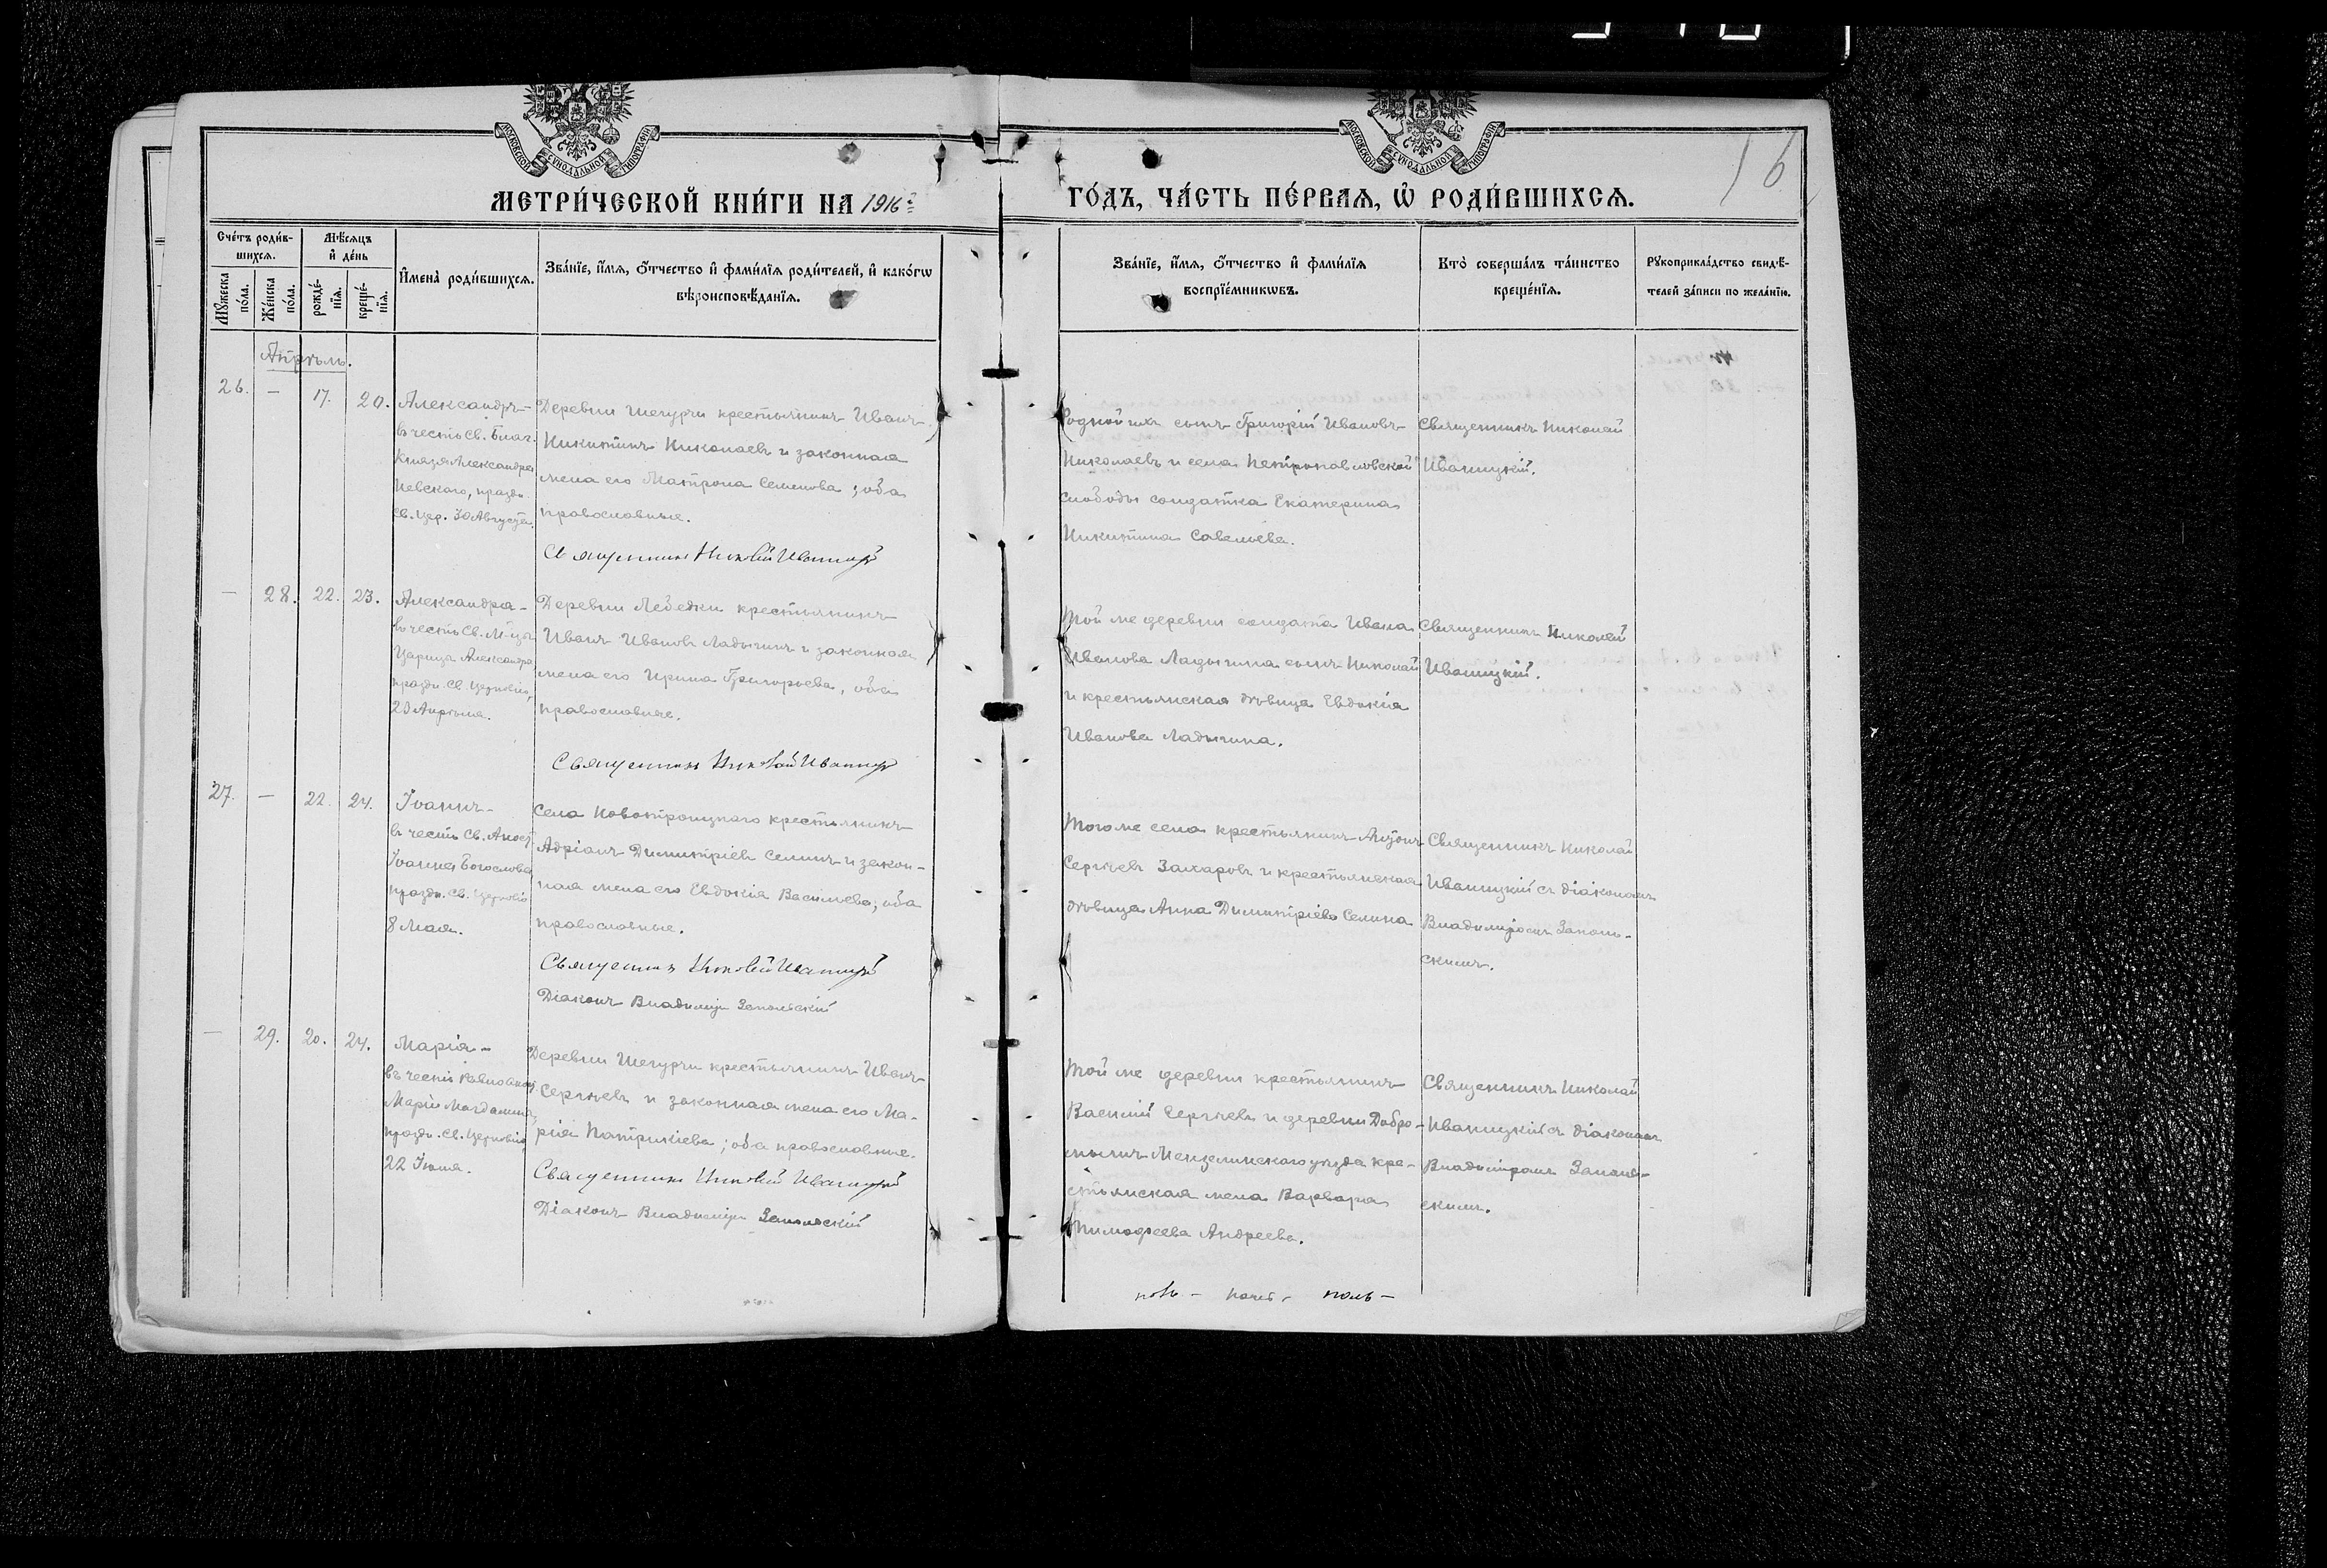 МОСКОВСКОЙ СѴНОДАЛЬНОЙ ТИПОГРАФІИ
МОСКОВСКОЙ СѴНОДАЛЬНОЙ ТИПОГРАФІИ
16
МЕТРИ́ЧЕСКОЙ КНИ́ГИ НА 1916 г.
ГО́ДЪ, ЧА́СТЬ ПЕ́РВАЯ, Ѿ РОДИ́ВШИХСЯ.
Сче́тъ роди́в-
шихся.
Мѣ́сяцъ
и҆ де́нь
Мꙋ́жеска по́ла.
Же́нска по́ла.
рожде́-
нїя.
креще́-
нїя.
И҆мена̀ роди́вшихся.
Зва́нїе, и҆́мя, ѻ҆́тчество и҆ фами́лїя роди́телей, и҆ како́гѡ
вѣроисповѣ́данїя.
Зва́нїе, и҆́мя, ѻ҆́тчество и҆ фами́лїя
воспрїе́мникѡвъ.
Кто̀ соверша́лъ та́инство
креще́нїя.
Рꙋкоприкла́дство свидѣ́-
телей за́писи по жела́нїю.
Апрѣль.
26. — 17. 20.
Александръ –
въ честь Св. Благ.
Князя Александра
Невскаго, праздн.
Св. Цер. 30 Августа.
Деревни Шегурчи крестьянинъ Иванъ
Никитинъ Николаевъ и законная
жена его Матрона Семенова; оба
православные.
Священникъ Николай Иваницкій
Родной ихъ сынъ Григорій Ивановъ
Николаевъ и села Петропавловской
слободы солдатка Екатерина
Никитина Савельева.
Священникъ Николай
Иваницкій.
— 28. 22. 23.
Александра –
въ честь Св. М-цы
Царицы Александры
праздн. Св. Церковію,
23 Апрѣля.
Деревни Лебедки крестьянинъ
Иванъ Ивановъ Ладыгинъ и законная
жена его Ирина Григорьева, оба
православные.
Священникъ Николай Иваницкій
Той же деревни солдата Ивана
Иванова Ладыгина сынъ Николай
и крестьянская дѣвица Евдокія
Иванова Ладыгина.
Священникъ Николай
Иваницкій.
27. — 22. 24.
Іоаннъ –
въ честь Св. Апост.
Іоанна Богослова
праздн. Св. Церковію
8 Мая.
Села Новотроицкаго крестьянинъ
Адріанъ Димитріевъ Селинъ и закон-
ная жена его Евдокія Васильева; оба
православные.
Священникъ Николай Иваницкій
Діаконъ Владиміръ Запольскій
Того же села крестьянинъ
Сергѣевъ Захаровъ и крестьянская
дѣвица Анна Димитріева Селина
Священникъ Николай
Иваницкій съ діакономъ
Владиміромъ Заполь-
скимъ.
— 29. 20. 24.
Марія –
въ честь Равноапост.
Маріи Магдалины,
праздн. Св. Церковію,
22 Іюля.
Деревни Шегурчи крестьянинъ Иванъ
Сергѣевъ и законная жена его Ма-
рія Патрикіева; оба православные.
Священникъ Николай Иваницкій
Діаконъ Владиміръ Запольскій
Той же деревни крестьянинъ
Василій Сергѣевъ и деревни Добро-
мышъ Мензелинскаго уѣзда кре-
стьянская жена Варвара
Тимофеева Андреева.
Священникъ Николай
Иваницкій съ діакономъ
Владиміромъ Заполь-
скимъ.